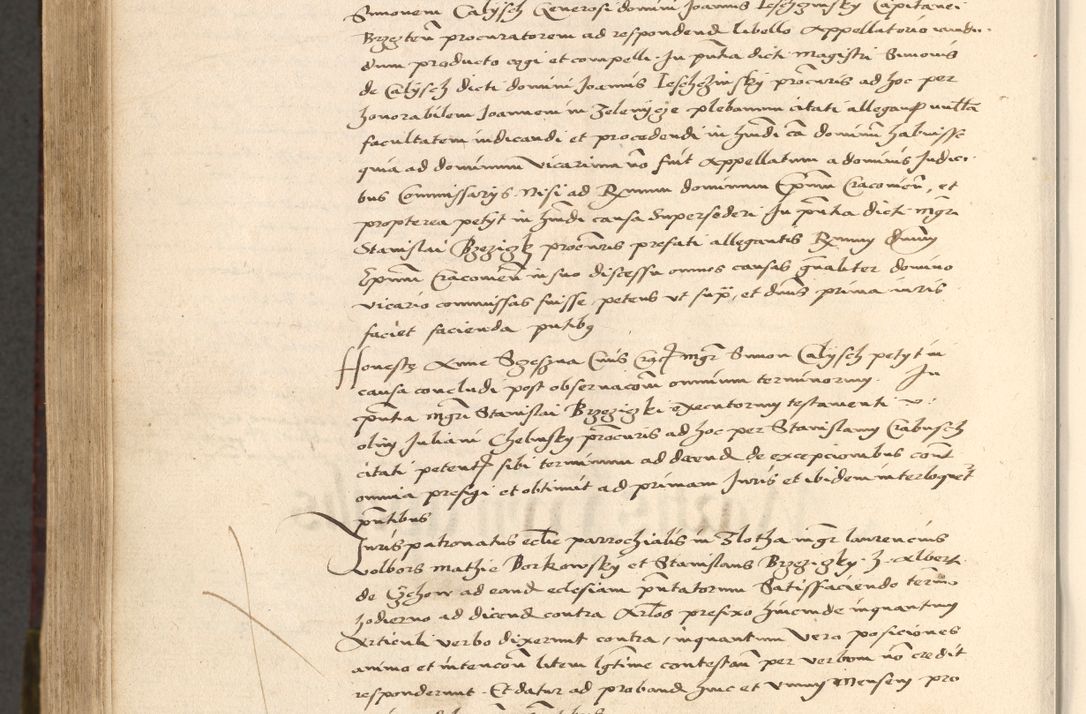 Simonem Calÿsch Generosi domini Joannis Leschzinsky Capitanei
Brzezteñ procuratorem ad respondend libello appellatorio
dum producto cogi et compelli. In pñtia dicti magistri Simonis
de Calÿsch dicti domini Joannis Leschczinskÿ procuris ad hoc per
honorabilem Joannem in Zelenycze plebanum citati allegans nullã
facultatem iudicandi et procedendi in hmõi cã dominũ habuisse
quia ad dominum vicarium nõ fuit appellatum a dominis Judic
bus Commissarÿs. Nisi ad Rmum dominum Epum Cracovieñ, et
propterea petÿt in hmõi causa supersederi In pñtia dicti mgri
Stanislai Brzeziczkÿ procuris prefati allegantis Rmum dnum
Epum Cracovieñ in suo discessu omnes causas gñaliter domino
vicario commissas fuisse, petens vt sup, et dnus prima iuris
faciet facienda pntibus
Honeste Anne Sczeszna Civis Crac mgr Simon Calÿsch petÿt in
causa concludi post observacoem omnium terminorum. In
pñtia mgri Stanislai Brzeziczki executorum testamenti
olim Juliani Chelmsky procuris ad hoc per Stanislaum Crabusch
citati petent sibi terminum ad dicend de excepcionibus cont
omnia prefigi et obtinuit ad primam Juris et ibidem interloquet
pñtibus
Juris patronatus eccle parrochialis in Zlotha mgr laurencius
volbors Mathie Borkowsky et Stanislaus Brzeziczky. h. Albert
de Czchow ad eand ecclesiam pñtatorum Satisfaciendo termo
hodierno ad dicend contra Arlos prefixo hincinde inquantum
Articuli verbo dixerunt contra, inquantum vero posiciones
animo et intencoñ litem lgtime contestañ per verbum nõ credit
responderunt. Et datur ad proband hinc et vnum Mensem pro